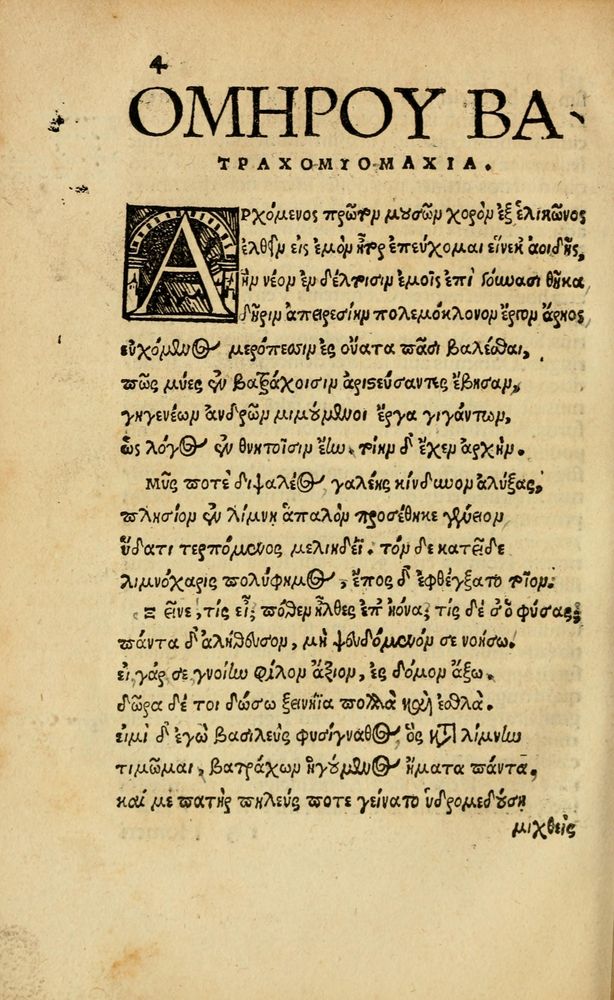 4
ΟΜΗΡΟΥ ΒΑ
ΤΡΑΧΟΜΥΟΜΑΧΙΑ.
ΑΡχόμενος πρῶτον μουσῶν χορὸν ἐξ ἑλικῶνος
ἐλθεῖν εἰς ἐμὸν ἦτρ ἐπεύχομαι εἵνεκ' ἀοιδῆς,
ἣν νέον ἐν δέλτοισιν ἐμοῖς ἐπὶ γούνασι θῆκα
δῆριν ἀπειρεσίην πολεμόκλονον ἔργον ἄρηος
εὐχόμενος μερόπεσσιν ἐς οὔατα πᾶσι βαλέσθαι,
πῶς μύες ἐν βατράχοισιν ἀριστεύσαντες ἔβησαν,
γηγενέων ἀνδρῶν μιμούμενοι ἔργα γιγάντων,
ὡς λόγος ἐν θνητοῖσιν ἔην. τίην δ' ἔχεν ἀρχήν.
Μῦς ποτὲ διψαλέος, γαλέης κίνδυνον ἀλύξας,
πλησίον ἐν λίμνῃ ἁπαλὸν προσέθηκε γένειον
ὕδατι τερπόμενος μελιηδέϊ. τὸν δὲ κατεῖδε
λιμνόχαρις πολύφημος, ἔπος δ' ἐφθέγξατο τοῖον.
Ξεῖνε, τίς εἶ; πόθεν ἦλθες ἐπ' ἠϊόνα; τίς δέ σ' ὁ φύσας;
πάντα δ' ἀλήθευσον, μὴ ψευδόμενόν σε νοήσω.
εἰ γάρ σε γνοίην φίλον ἄξιον, ἐς δόμον ἄξω.
δῶρα δέ τοι δώσω ξεινήϊα πολλὰ καὶ ἐσθλά.
εἰμὶ δ' ἐγὼ βασιλεὺς φυσίγναθος, ὃς κατὰ λίμνην
τιμῶμαι, βατράχων ἡγούμενος ἤματα πάντα.
καί με πατὴρ πηλεὺς ποτε γείνατο ὑδρομεδούσῃ
μιχθεὶς